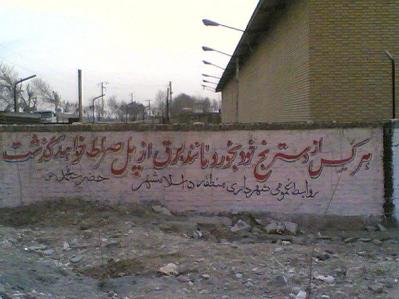 هر کس از دسترنج خود بخورد مانند برق از پل صراط خواهد گذشت
حضرت محمد
روابط عمومی شهرداری منطقه ۵ اسلامشهر